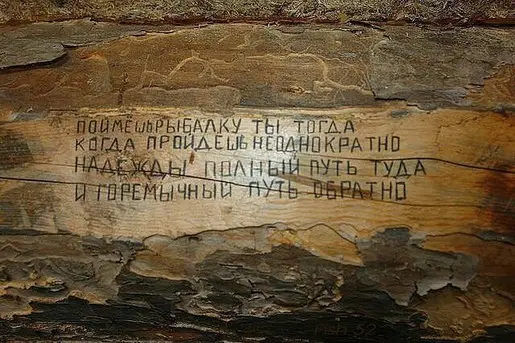 ПОЙМЕШЬ РЫБАЛКУ ТЫ ТОГДА
КОГДА ПРОЙДЕШЬ НЕОДНОКРАТНО
НАДЕЖДЫ ПОЛНЫЙ ПУТЬ ТУДА
И ГОРЕМЫЧНЫЙ ПУТЬ ОБРАТНО